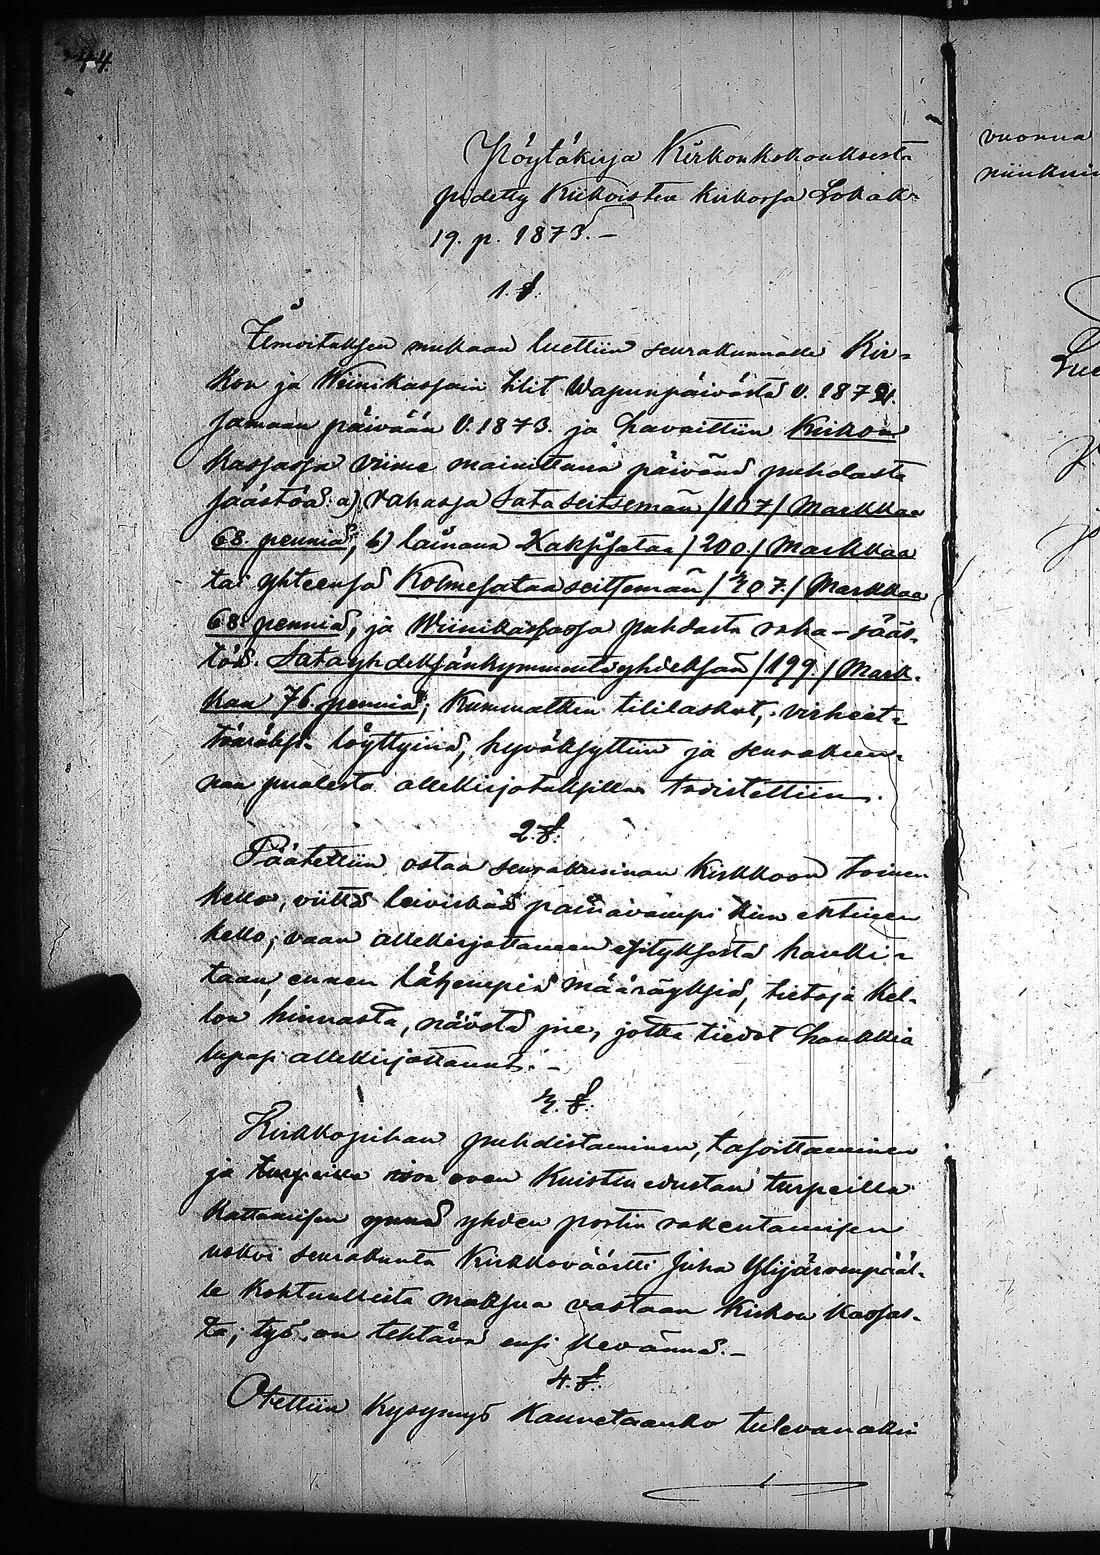 44.
Pöytäkirja Kirkonkokouksesta
pidetty Kiikoisten kirkossa Lokak.
19. p. 1873. –
1. §.
Ilmoituksen mukaan luettiin seurakunnalle Kir-
kon ja Wiinikassain tilit Wapunpäivästä v. 1872.
samaan päivään v. 1873. ja havaittiin Kirkon
kassassa viime mainittuna päivänä puhdasta
säästöä: a) rahassa Sataseitsemän /107/ Markkaa
68. penniä; b) lainana Kaksisataa /200/ Markkaa
tai yhteensä Kolmesataaseitsemän /307/ Markkaa
68. penniä, ja Wiinikassassa puhdasta raha-sääs-
töä. Satayhdeksänkymmentäyhdeksän /199./ Mark-
kaa 76. penniä; Kummatkin tililaskut, virheet-
tömäksi löyttyinä, hyväksyttiin ja seurakun-
nan puolesta allekirjotuksilla todistettiin.
2. §.
Päätettiin ostaa seurakunnan Kirkkoon toinen
kello, viittä leiviskää painavampi kuin entinen
kello; vaan allekirjottaneen esityksestä hanki-
taan, ennen lähempiä määräyksiä, tietoja kel-
lon hinnasta, näöstä jne, jotka tiedot hankkia
lupasi allekirjottanut. –
3. §.
Kirkkopihan puhdistaminen, tasoittaminen
ja turpeilla ison oven Kuistin edustan turpeilla
kattamisen ynnä yhden portin rakentamisen
uskoi seurakunta Kirkkoväärtti Juha Ylijärvenpääl-
le kohtuullista maksua vastaan Kirkon kassas-
ta; työ on tehtävä ensi kevännä. –
4. §.
Otettiin kysymys kannetaanko tulevanakin
vuonna
niinkuin